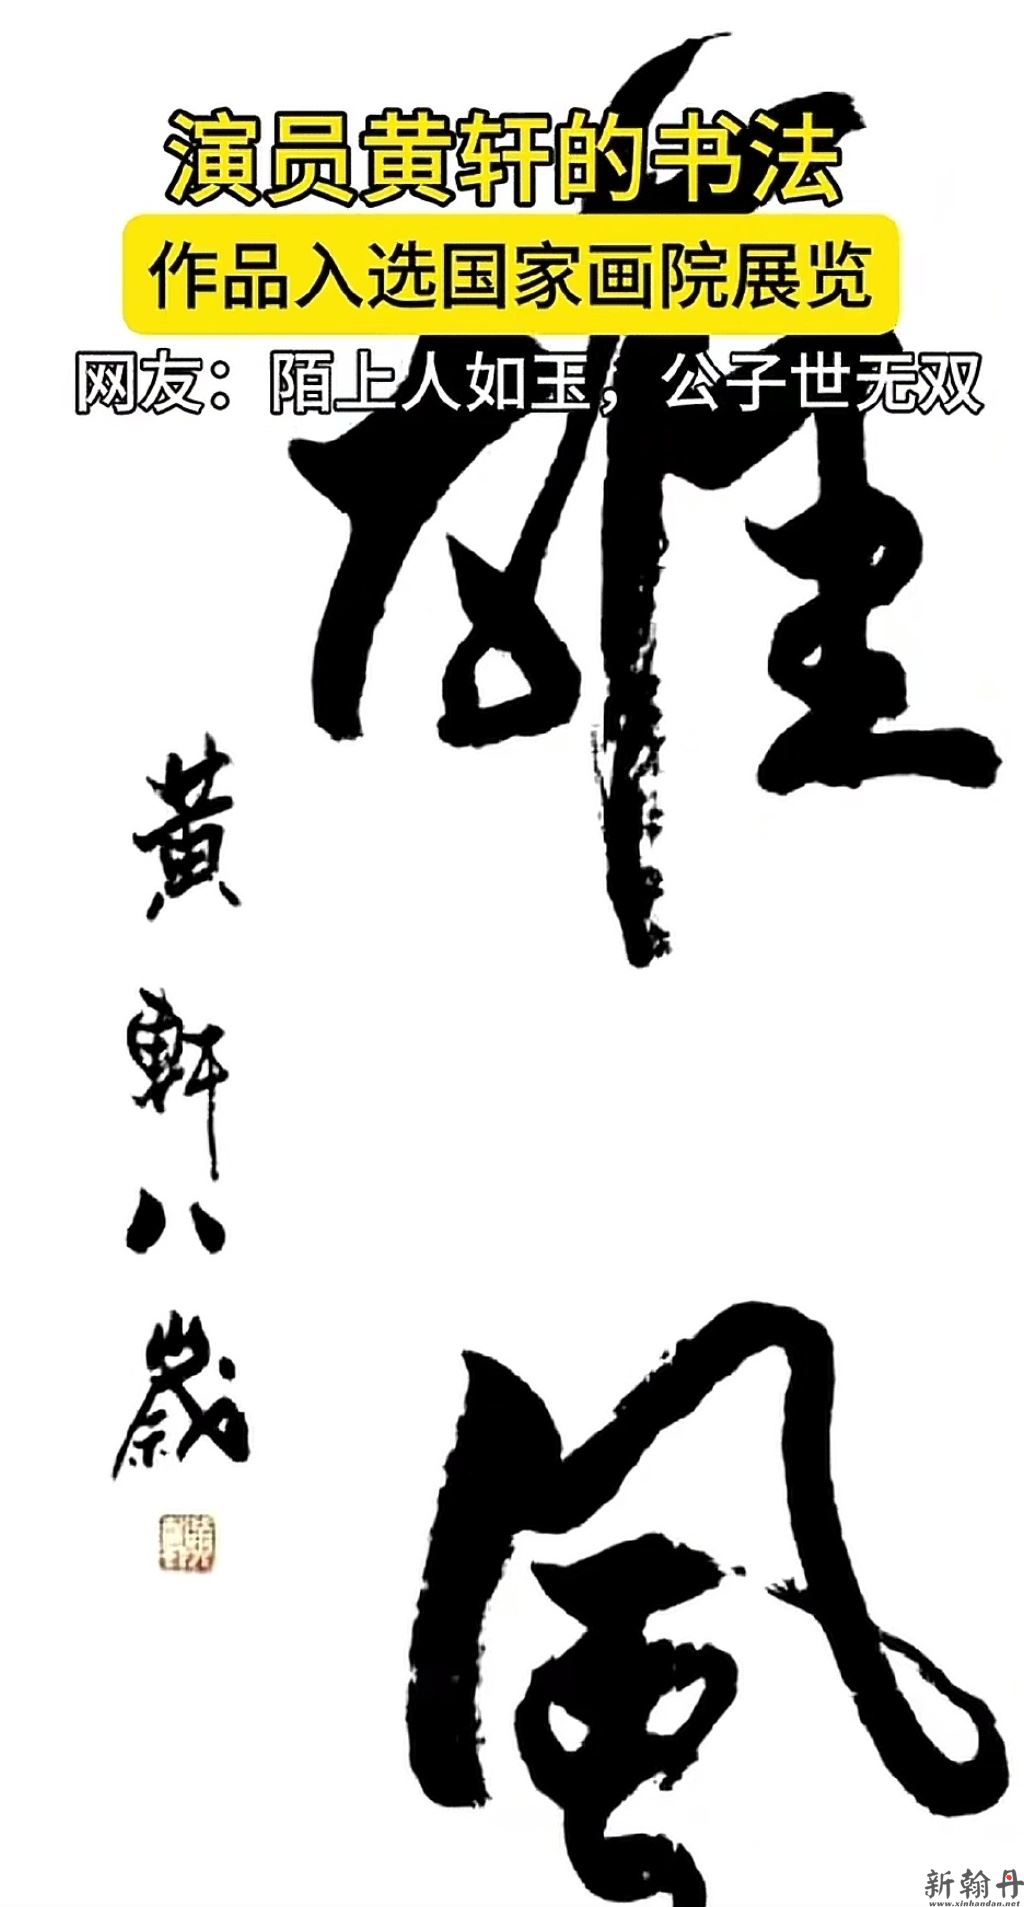 演员黄轩的书法
作品入选国家画院展览
网友：陌上人如玉，公子世无双
雄風
黃軒八歲
新翰丹
www.xinhandan.net